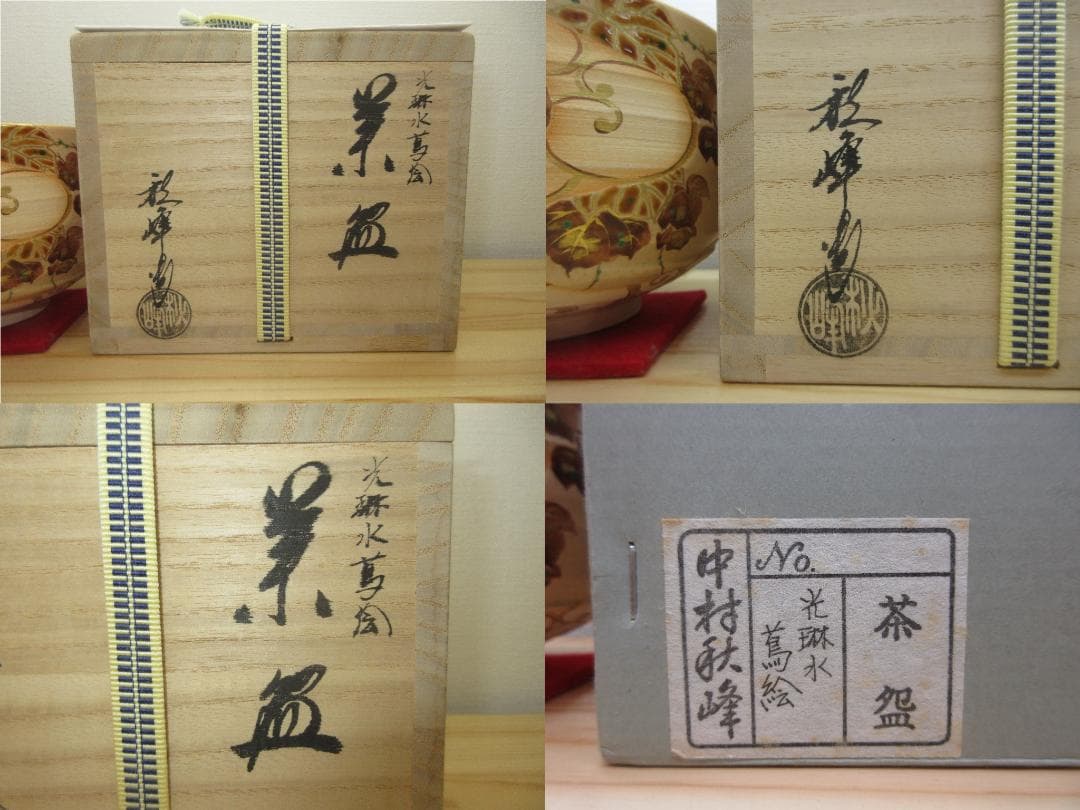 光琳水蔦絵
茶盌
秋峰造
秋峰
秋峰造
秋峰
光琳水蔦絵
茶盌
茶盌
No.
光琳水
蔦絵
中村秋峰